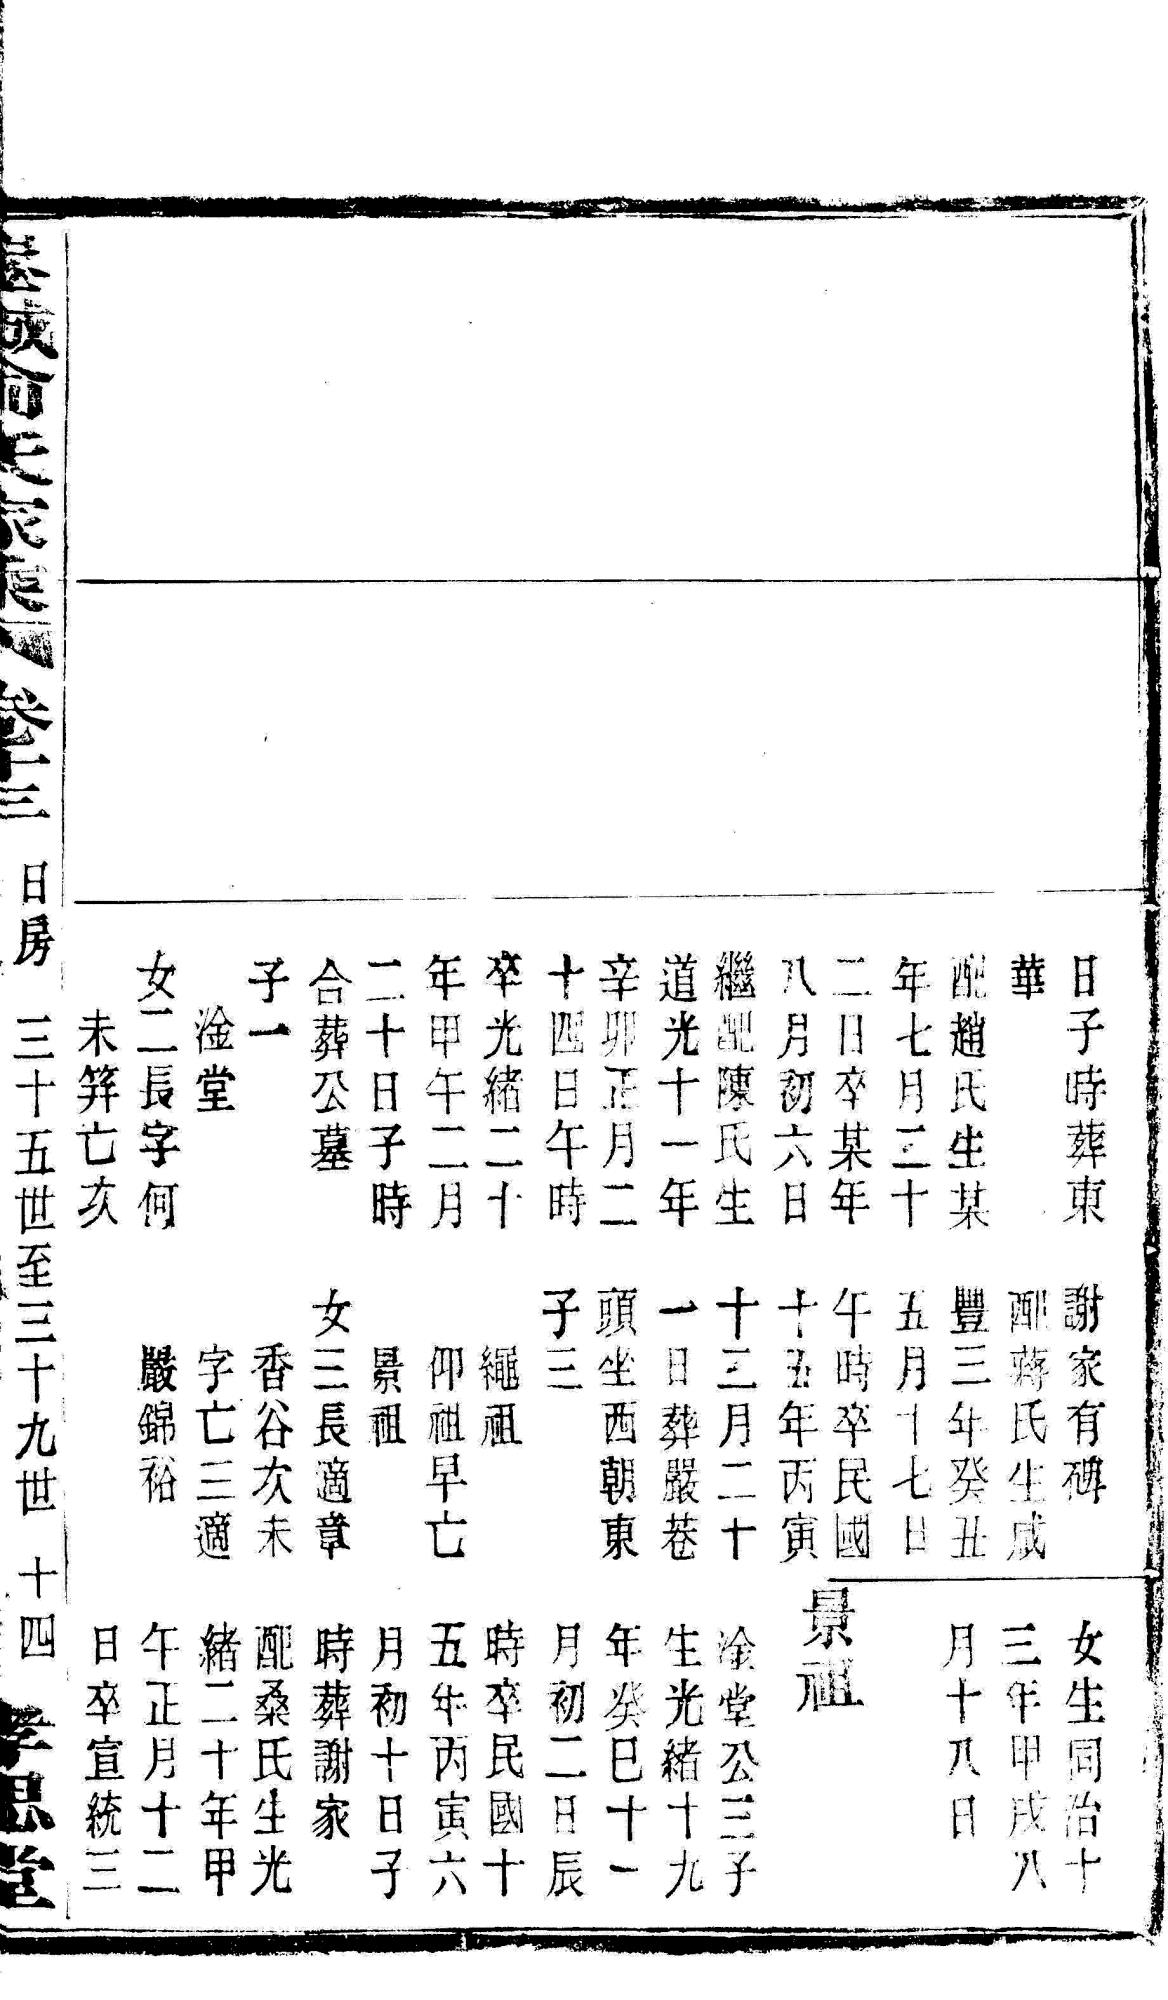 日子時葬東
華
配趙氏生某
年七月二十
二日卒某年
八月初六日
繼配陳氏生
道光十一年
辛卯正月二
十四日午時
卒光緒二十
年甲午二月
二十日子時
合葬公墓
子一
淦堂
女二長字何
未笄亡次
謝家有碑
配蔣氏生咸
豐三年癸丑
五月十七日
午時卒民國
十五年丙寅
十二月二十
一日葬嚴巷
頭坐西朝東
子三
繩祖
仰祖早亡
景祖
女三長適章
香谷次未
字亡三適
嚴錦裕
女生同治十
三年甲戌八
月十八日
景祖
淦堂公三子
生光緒十九
年癸巳十一
月初二日辰
時卒民國十
五年丙寅六
月初十日子
時葬謝家
配桑氏生光
緒二十年甲
午正月十二
日卒宣統三
俞氏家乘 卷十三 日房 三十五世至三十九世 十四 孝思堂